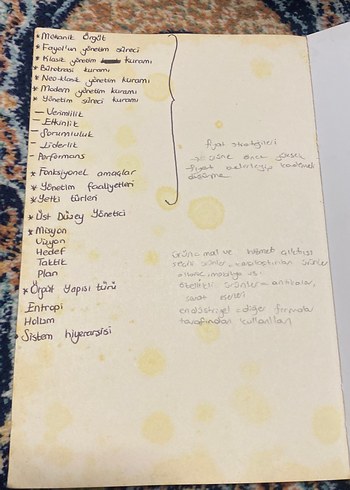 * Mekanik Örgüt
* Fayol'un yönetim süreci
* Klasik yönetim kuramı
* Bürokrasi kuramı
* Neo-klasik yönetim kuramı
* Modern yönetim kuramı
* Yönetim süreci kuramı
- Verimlilik
- Etkinlik
- Sorumluluk
- Liderlik
- Performans
* Fonksiyonel amaçlar
* Yönetim faaliyetleri
* Yetki türleri
* Üst Düzey Yönetici
* Misyon
Vizyon
Hedef
Taktik
Plan
* Örgüt Yapısı türü
Entropi
Holizm
Sistem hiyerarşisi
Fiyat stratejileri
önce yüksek
-fiyat
ürün = mal ve hizmet
ürünler
ürünler = antikalar,
sanat eseri
endüstriyel = diğer firmalar
tarafından kullanılan